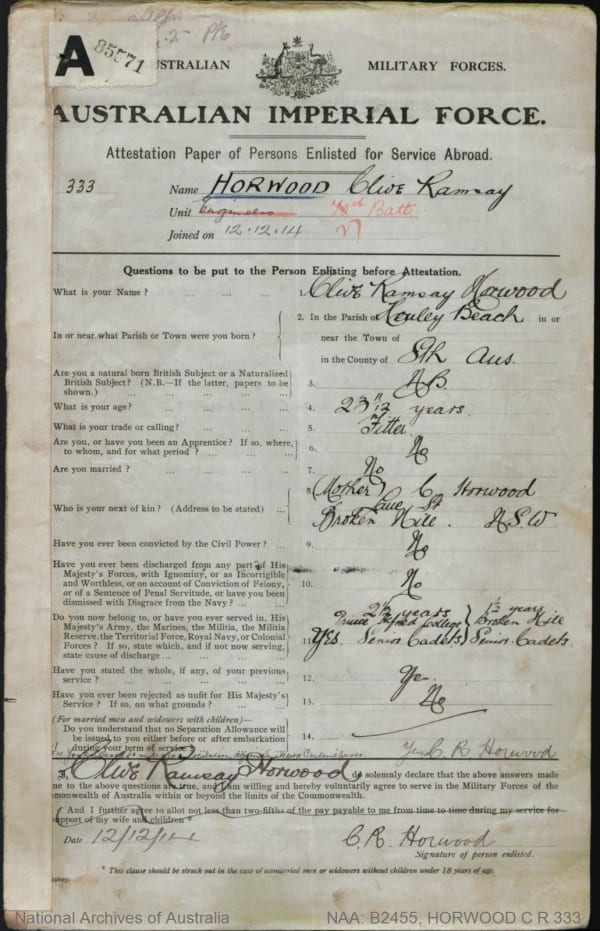 A 85571
P/E
AUSTRALIAN MILITARY FORCES.
AUSTRALIAN IMPERIAL FORCE.
Attestation Paper of Persons Enlisted for Service Abroad.
333 Name HORWOOD Clive Ramsay
Unit Engineers Batt
Joined on 12.12.14
Questions to be put to the Person Enlisting before Attestation.
What is your Name? ... ... ... 1. Clive Ramsay Horwood
2. In the Parish of Henley Beach in or
In or near what Parish or Town were you born? ... near the Town of
in the County of Sth Aus.
Are you a natural born British Subject or a Naturalized
British Subject? (N.B.—If the latter, papers to be
shown.) ... ... ... 3. N.B.
What is your age? ... ... ... 4. 23 11/12 years
What is your trade or calling? ... ... 5. Fitter
Are you, or have you been an Apprentice? If so, where,
to whom, and for what period? ... ... ... 6. No
Are you married? ... ... ... 7. No
8. (Mother) C Horwood
Lane St
Who is your next of kin? (Address to be stated) ... Broken Hill. N.S.W
Have you ever been convicted by the Civil Power? ... 9. No
Have you ever been discharged from any part of His
Majesty's Forces, with Ignominy, or as Incorrigible
and Worthless, or on account of Conviction of Felony,
or of a Sentence of Penal Servitude, or have you been
dismissed with Disgrace from the Navy? ... ... 10. No
Do you now belong to, or have you ever served in, His
Majesty's Army, the Marines, the Militia, the Militia
Reserve, the Territorial Force, Royal Navy, or Colonial
Forces? If so, state which, and if not now serving,
state cause of discharge ... ... ...
2½ years 1½ years
Prince Alfred College Broken Hill
11. Yes. Senior Cadets Senior Cadets.
Have you stated the whole, if any, of your previous
service? ... ... ... 12. Yes
Have you ever been rejected as unfit for His Majesty's
Service? If so, on what grounds? ... ... 13. No
(For married men and widowers with children)—
Do you understand that no Separation Allowance will
be issued to you either before or after embarkation
during your term of service? 14.
Yes C. R Horwood
I, Clive Ramsay Horwood do solemnly declare that the above answers made
me to the above questions are true, and I am willing and hereby voluntarily agree to serve in the Military Forces of the
monwealth of Australia within or beyond the limits of the Commonwealth.
And I further agree to allot not less than two-fifths of the pay payable to me from time to time during my service for
upport of my wife and children*
Date 12/12/14 C.R. Horwood
Signature of person enlisted.
* This clause should be struck out in the case of unmarried men or widowers without children under 18 years of age.
National Archives of Australia NAA: B2455, HORWOOD C R 333